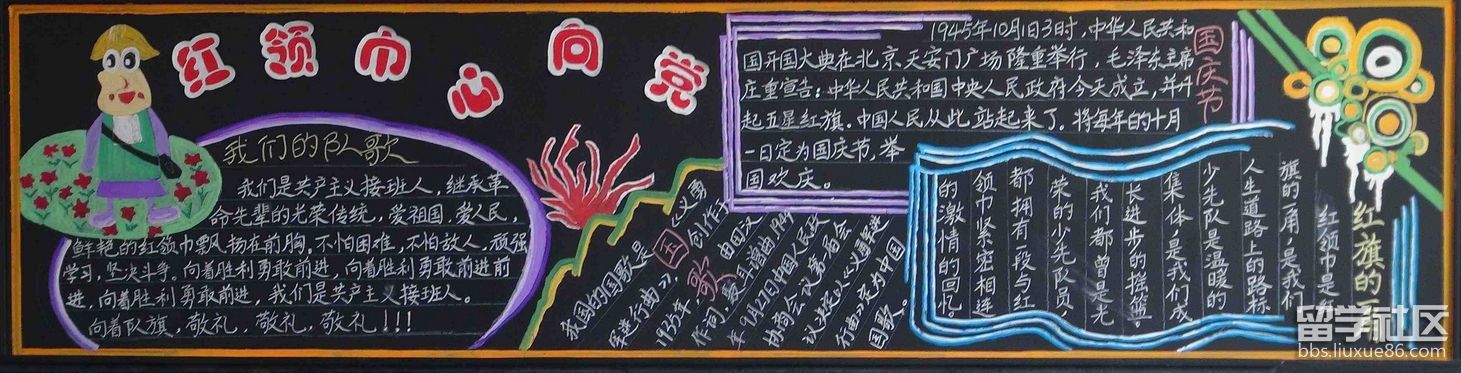 红领巾心向党
我们的队歌
我们是共产主义接班人，继承革
命先辈的光荣传统，爱祖国，爱人民，
鲜艳的红领巾飘扬在前胸，不怕困难，不怕敌人，顽强
学习，坚决斗争，向着胜利勇敢前进，向着胜利勇敢前进前
进，向着胜利勇敢前进，我们是共产主义接班人。
向着队旗，敬礼，敬礼，敬礼！！！
国歌
我国的国歌是《义勇
军进行曲》，创作于
1935年，由田汉
作词，聂耳谱曲，1949
年9月27日中国人民政
协商会议第一届会
议决定以《义勇军进
行曲》定为中国
国歌。
国庆节
1945年10月1日3时，中华人民共和
国开国大典在北京天安门广场隆重举行，毛泽东主席
庄重宣告：中华人民共和国中央人民政府今天成立，并升
起五星红旗。中国人民从此站起来了。将每年的十月
一日定为国庆节，举
国欢庆。
红旗的一
红领巾是红
旗的一角，是我们
人生道路上的路标
少先队是温暖的
集体，是我们成
长进步的摇篮。
我们都曾是光
荣的少先队员，
都拥有一段与红
领巾紧密相连
的激情的回忆。
留学社区
bbs.liuxue86.com